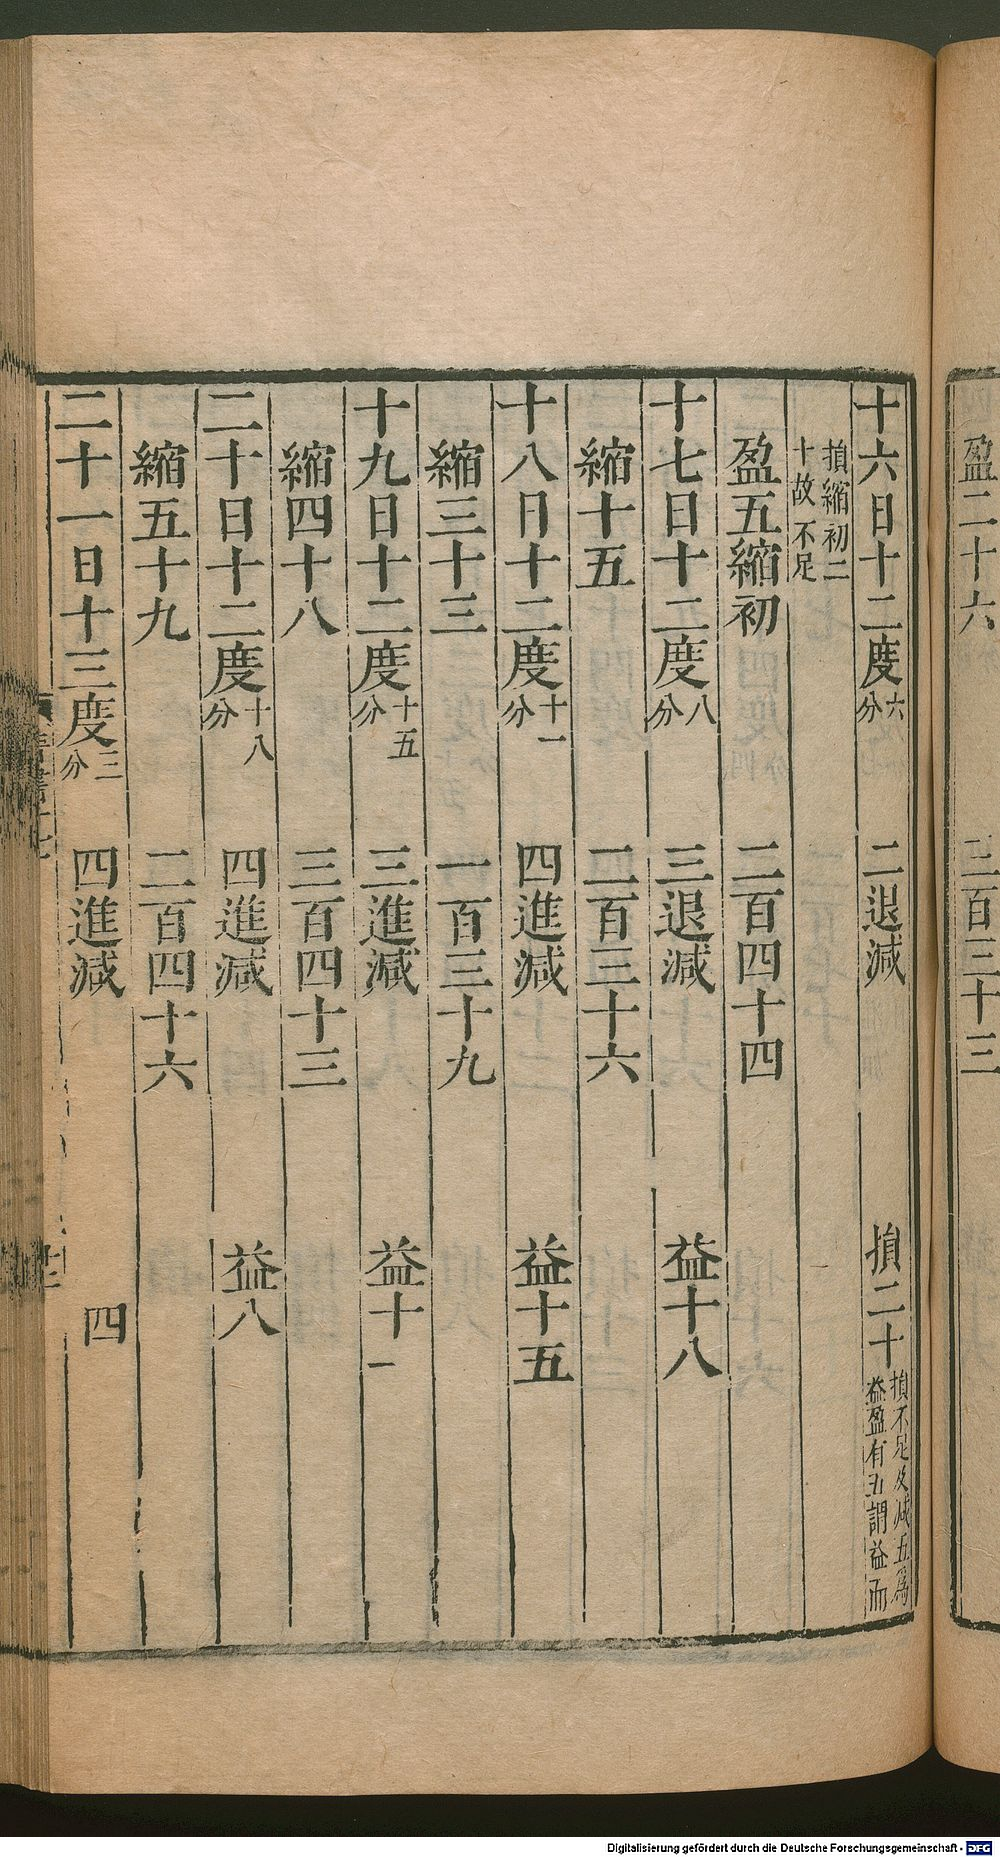 盈二十六　三百三十三
十六日十二度六分　二退減　損二十損不足反減五爲益盈有五謂益而
損縮初二十故不足
盈五縮初　二百四十四
十七日十二度八分　三退減　益十八
縮十五　二百三十六
十八日十二度十一分　四進減　益十五
縮三十三　一百三十九
十九日十二度十五分　三進減　益十一
縮四十八　三百四十三
二十日十二度十八分　四進減　益八
縮五十九　二百四十六
二十一日十三度三分　四進減　四
Digitalisierung gefördert durch die Deutsche Forschungsgemeinschaft - DFG